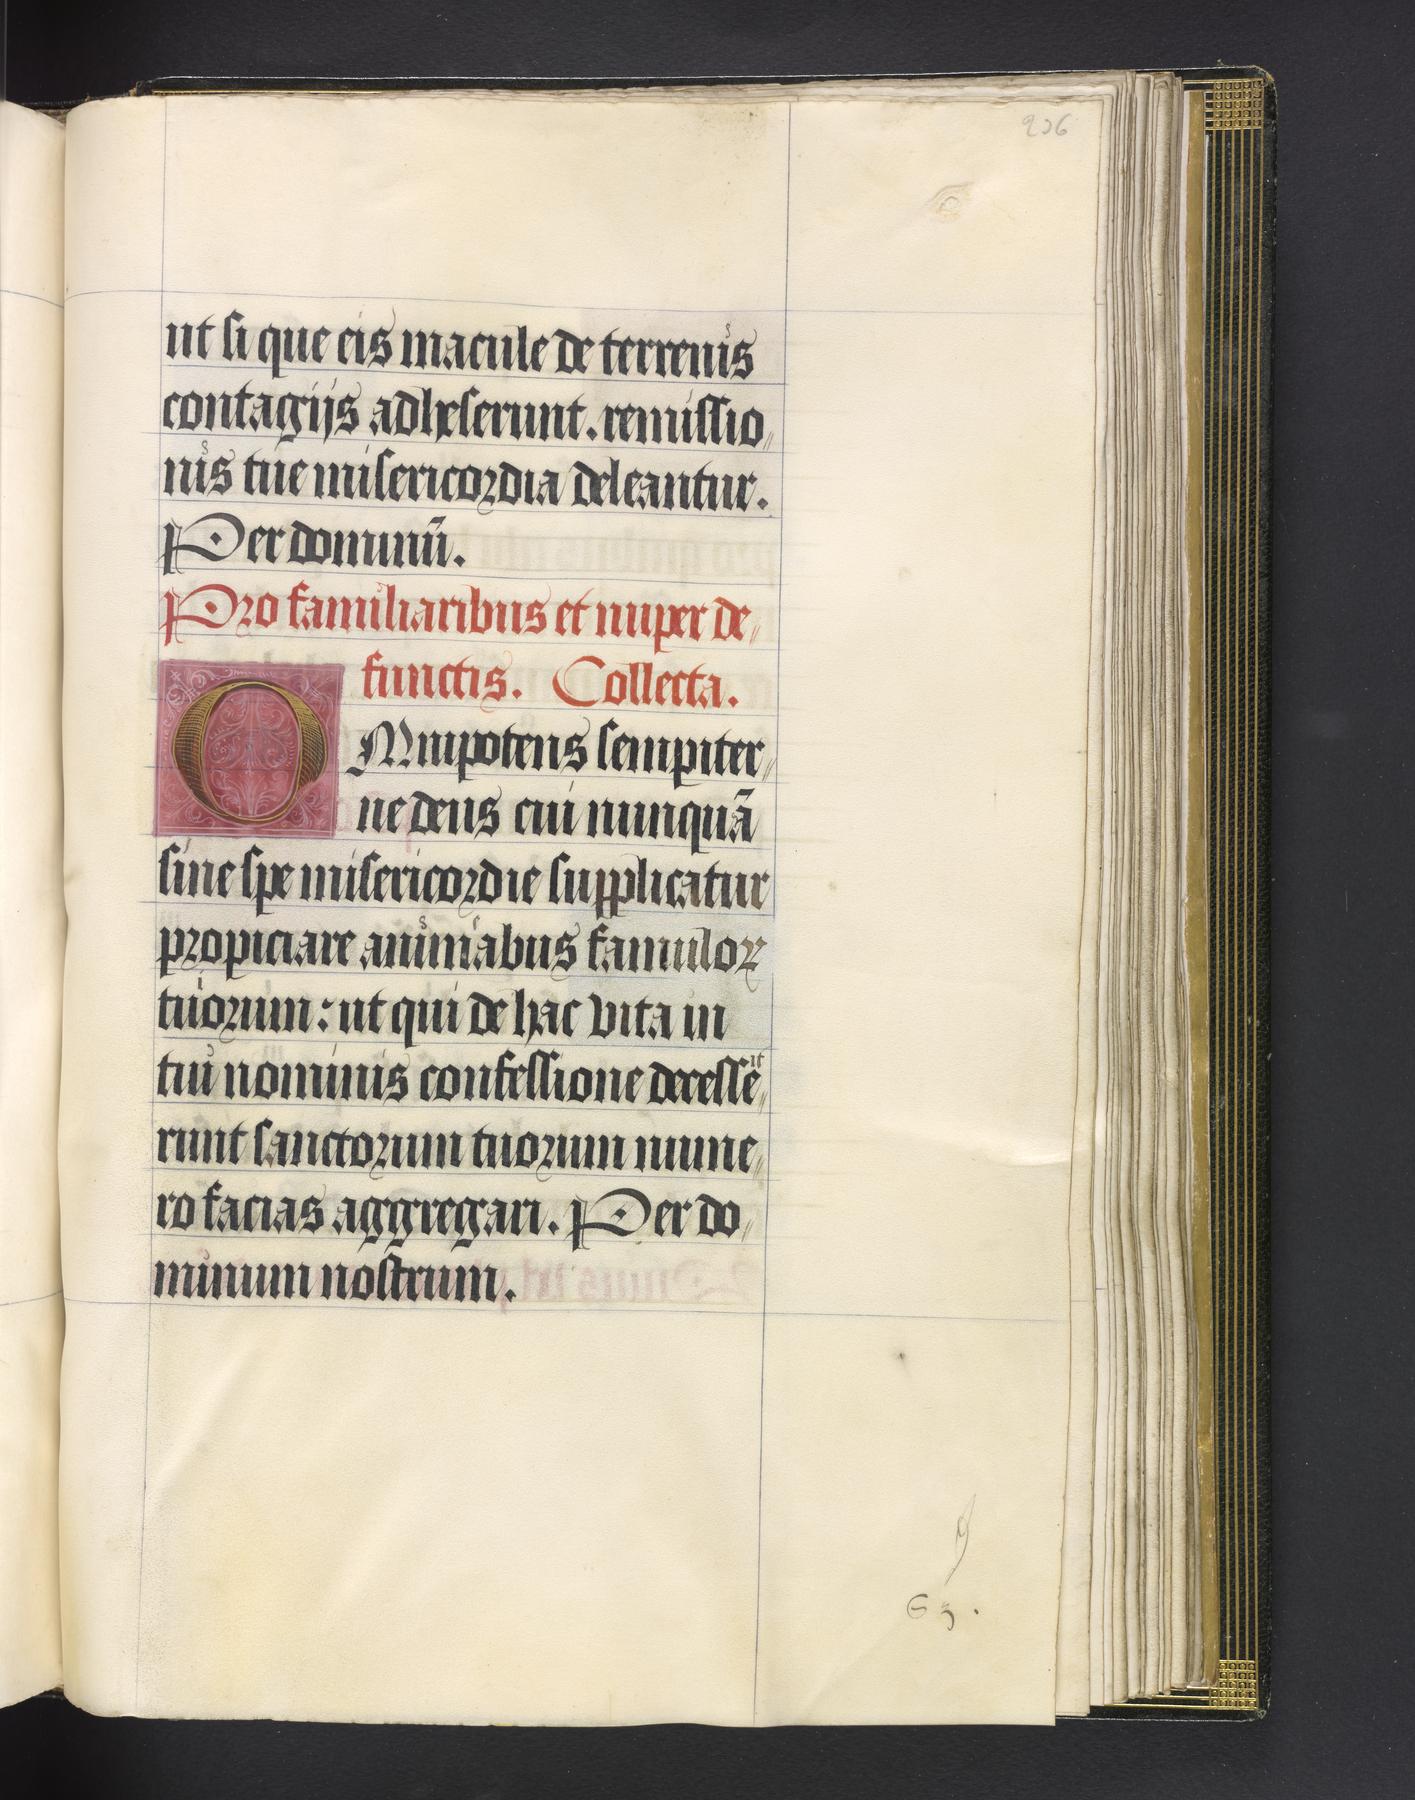 236
ut si que eis macule de terrenis
contagijs adheserunt. remissio〃
nis tue misericordia deleantur.
Per dominū.
Pro familiaribus et nuper de〃
functis. Collecta.
OMnipotens sempiter〃
ne deus cui nunquā
sine spe misericordie supplicatur
propiciare animabus famuloꝝ
tuorum: ut qui de hac vita in
tui nominis confessione decesse͏̄〃
runt sanctorum tuorum nume〃
ro facias aggregari. Per do〃
minum nostrum.